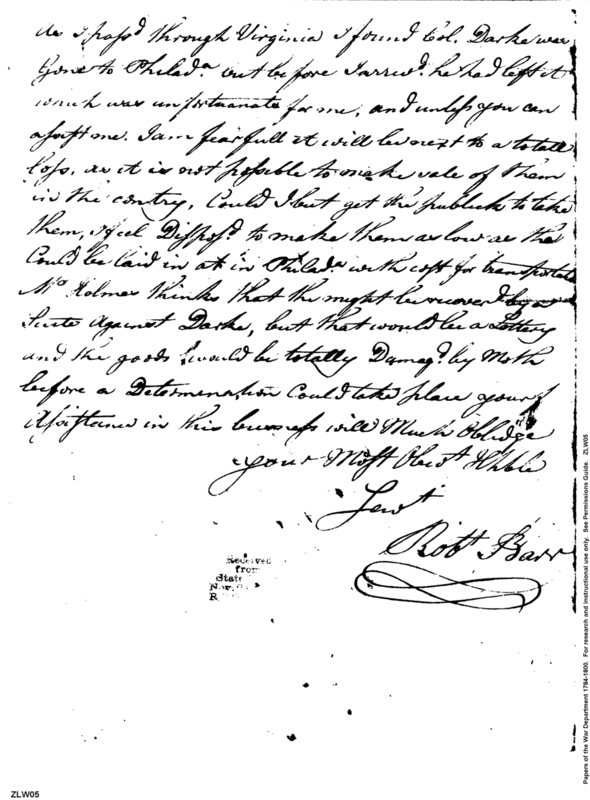 As I passd through Virginia I found Col. Darke was
Gone to Philada but before I arrivd he had left it
which was unfortuanate for me, and unless you can
assist me. I am fearfull it will be next to a totall
Loss, as it is not possible to make sale of them
in the contry, Could I but get the publick to take
them, I feel Disposd to make them as low as the
Could be laid in at in Philada with cost for transportation
Mr Holmes thinks that the might be recoverd by a
Suite Against Darke, but that would be a Lottery
and the goods would be totally Damagd by Moth
before a Determenation Could take place your
Assistance in this buseness will Much Oblidge
your Most Obet Hble
Servt
Robt Barr
Received
from
State
R.
ZLW05
Papers of the War Department 1784-1800. For research and instructional use only. See Permissions Guide. ZLW05